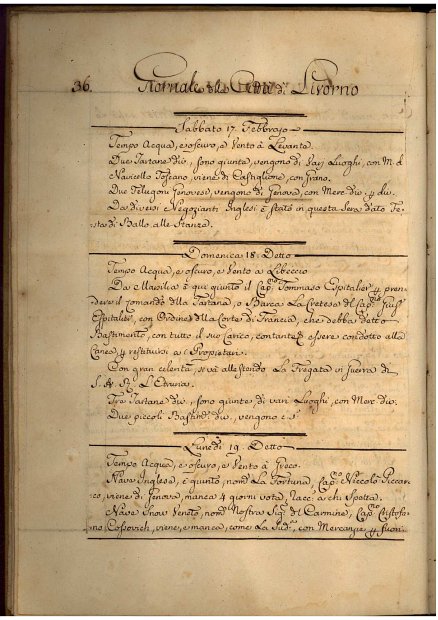 36. Giornale della Città di Livorno
Sabbato 17. Febbrajo
Tempo Acqua, e oscuro, e Vento à Levante.
Due Tartane div. sono giunte, vengono di varj Luoghi, con M. d.
Navicello Toscano, viene di Castiglione, con grano.
Due Felugoni Genovesi, vengono di Genova, con Merc. div. p. div.
Da diversi e Negozianti Inglesi è stato in questa Sera dato Fe-
sta di Ballo alle Stanze.
Domenica 18. Detto
Tempo Acqua, e oscuro, e Vento a Libeccio
Da Marsilia è qui giunto il Cap.no Tommaso Espitalier p. pren-
dere il Comando della Tartana, o Barca La Cretese del Cap.no
Espitalier, con Ordine della Corte di Francia, che debba detto
Bastimento, con tutto il suo Carico, contante essere condotto alla
Canea p. restituirsi a i Propietarj.
Con gran celerità, si và allestendo La Fregata in Guerra di
S. A. R. L'Etruria.
Tre Tartane div. sono giunte di varj Luoghi, con Merc. div.
Due piccoli Bastim.ti div. vengono
Lunedi 19. Detto
Tempo Acqua, e oscuro, e Vento à Greco.
Nave Inglese, è giunto, nom.ta La Fortuna, Cap.no Niccolò Piccar-
co, viene di Genova, manca 4 giorni vota, Racc. a chi Spetta.
Nave Snow Veneto, nom. Nostra Sig.ra del Carmine, Cap.no Cristofo-
ro Cossovich, viene, e manca, come La Sud.a, con Mercanzie p. fuori.